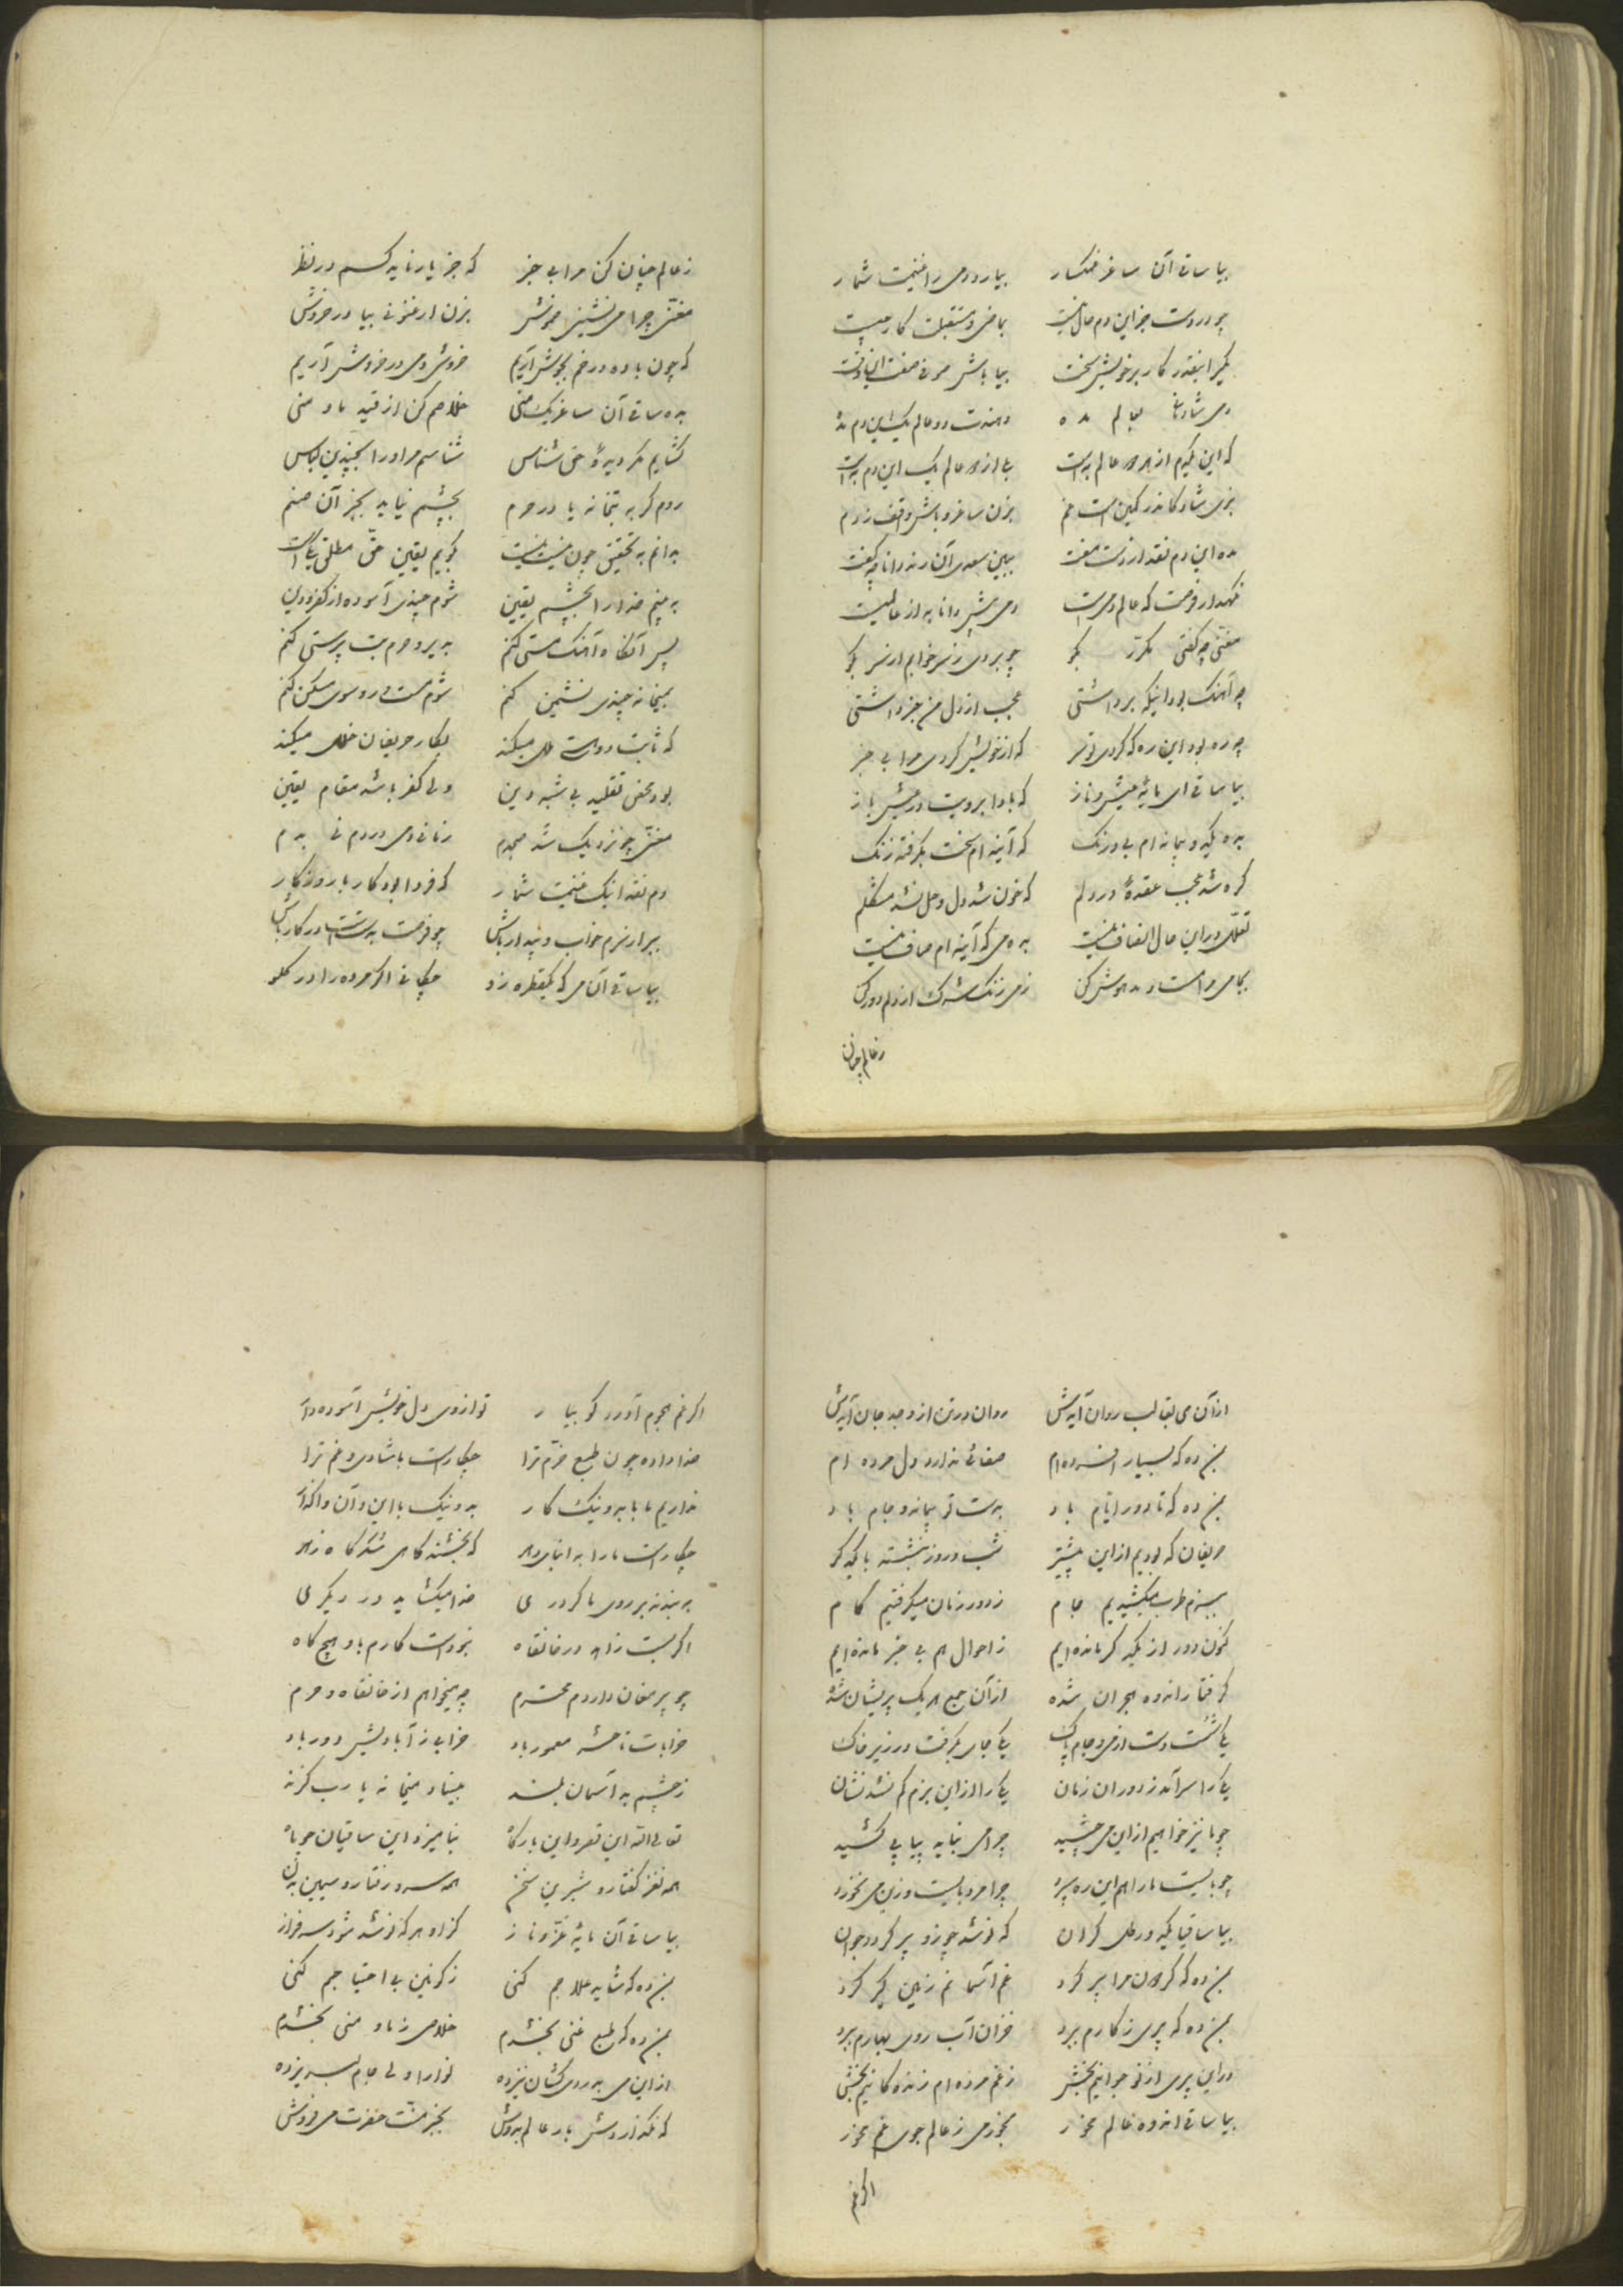 بیا ساقی آن ساغر غمگسار بیار و دمی را غنیمت شمار
چو در دست جز این دم حال نیست بماضی و مستقبلت کار چیست
مگیر اینقدر کار بر خویش سخت بیا باش
دمی شادمان بعالم مده و هندت دو عالم یک این دم مده
که این یکدم از هر دو عالم به است بلی از دو عالم یک این دم به است
بزی شاد کاندر کمین است غم بزن ساغر و باش واقف ز دم
مده این دم نقد از دست مفت ببین سعدی آن رند دانا چه گفت
نگهدار فرصت که عالم دمی است دمی پیش دانا به از عالمیست
مغنی چه گفتی مکرر بگو چو بردی ز سر خوابم از سر بگو
چه آهنگ بود اینکه برداشتی عجب از دل من خبر داشتی
چه ره بود این ره که کردی تو سر که از خویش کردی مرا بی خبر
بیا ساقی ای مایه عیش و ناز که باد ابرویت در عیش باز
بده یکدو پیمانه ام بی درنگ که آیینه ام سخت بگرفته زنگ
گره شد عجب عقدهٔ در دلم که خون شد دل و حل نشد مشکلم
تعلل در این حال انصاف نیست بده می که آیینه ام صاف نیست
بمی مر است و مدهوش کن ز می زنگ شک از دلم دور کن
ز عالم چنان
ز عالم چنان کن مرا بی خبر که جز یار ناید کسم در نظر
مغنی چرا می نشینی خموش بزن ارغنونی بیا در خروش
که چون باده در خم بجوش آریم خروشی دمی در خروش آریم
بده ساقی آن ساغر یک منی خلاصم کن از قید ما و منی
گشایم مگر دیدهٔ حق شناس شناسم مر او را بچندین لباس
روم گر به بتخانه یا در حرم بچشمم نیاید بجز آن صنم
بدانم به تحقیق چون نیست نیست بگویم یقین حق مطلق یکی است
ببینم خدا را بچشم یقین شوم چندی آسوده از کفر و دین
پس آنگاه آهنگ مستی کنم بدیر و حرم بت پرستی کنم
بمیخانه چندی نشیمن کنم شوم مست و در کوی مسکن کنم
که ثابت دوئی ملی میکند بکار حریفان خلل میکند
بود محض تقلید بی شبهه دین ولی کفر باشد مقام یقین
مغنی چو نزدیک شد صبحدم زمانی دمی در دم نی بدم
دم نقد اینک غنیمت شمار که فردا بود کار با روزگار
برآر از سرم خواب و بیدار باش چو فرصت بدستت در کار باش
بیا ساقی آن می که یکقطره زو چکانی اگر مرده را در گلو
از آن می بقالب روان آیدش روان در تن از وجد جان آیدش
بمن ده که بسیار افسرده ام صفائی ندارد دل مرده ام
بمن ده که تا دور ایام باد بدست تو پیمانه و جام باد
حریفان که بودیم از این پیشتر شب و روز بنشسته با یکدگر
ببزم طرب میکشیدیم جام ز دور زمان میگرفتیم کام
کنون دور از یکدگر مانده ایم ز احوال هم بی خبر مانده ایم
گرفتار اندوه هجران شده از آن جمع هر یک پریشان شده
یکی شست دست از می و جام پاک یکی جای بگرفت در زیر خاک
یکی را سر آمد ز دوران زمان یکی را از این بزم گم شد نشان
چو ما نیز خواهیم از این می چشید چرا می نباید پیاپی کشید
چو بایست ما را هم این ره سپرد چرا مرد بایست و زین می نخورد
بیا ساقیا یکدو رطل گران که نوشد چو زو پیر گردد جوان
بمن ده که گردون مرا پیر کرد غم آسمانم زمین گیر کرد
بمن ده که پیری ز کارم ببرد خزان آب روی بهارم ببرد
در این پیری از نو جوانیم بخش ز غم مرده ام زندگانیم بخش
بیا ساقی اندوه عالم مخور بخور می ز عالم جوی غم مخور
اگر غم
اگر غم هجوم آورد گو بیار تو از وی دل خویش آسوده دار
خدا داده چون طبع خرم ترا چکار است با شادی و غم ترا
نداریم ما با بد و نیک کار بد و نیک با این و آن واگذار
چکار است ما را به ابنای دهر که بخشند گاهی شکر گاه زهر
ببندند بر روی ما گر دری خدا میگشاید در دیگری
اگر بست زاهد در خانقاه نبوده است کارم باو هیچگاه
چو پیر مغان داردم محترم چه میخواهم از خانقاه و حرم
خرابات تا حشر معمور باد خرابی ز آبادیش دور باد
ز چشم بد آسمان بلند مبیناد میخانه یا رب گزند
تعالی الله این قصر و این بارگاه بنامیزد این ساقیان چو ماه
همه نغز گفتار و شیرین سخن همه سرو رفتار و سیمین بدن
بیا ساقی آن مایه عز و ناز کزو هر که نوشد شود سرفراز
بمن ده که شاید علاجم کنی ز کونین بی احتیاجم کنی
بمن ده که طبع غنی بخشدم خلاصی ز ما و منی بخشدم
از این می به دردی کشان نیز ده نو آرا ولی جام لبریز ده
که نگذاردش بار عالم بدوش بجز منت حضرت می فروش